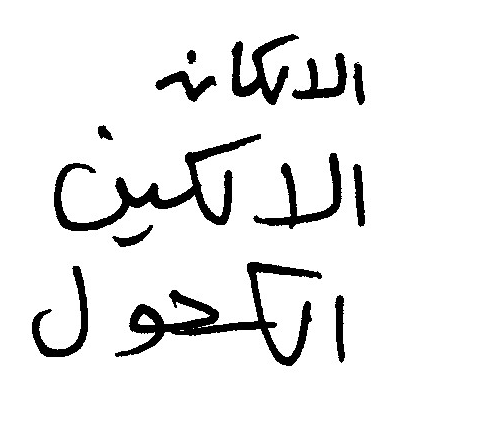 الالكانه
الالكين
الكحول